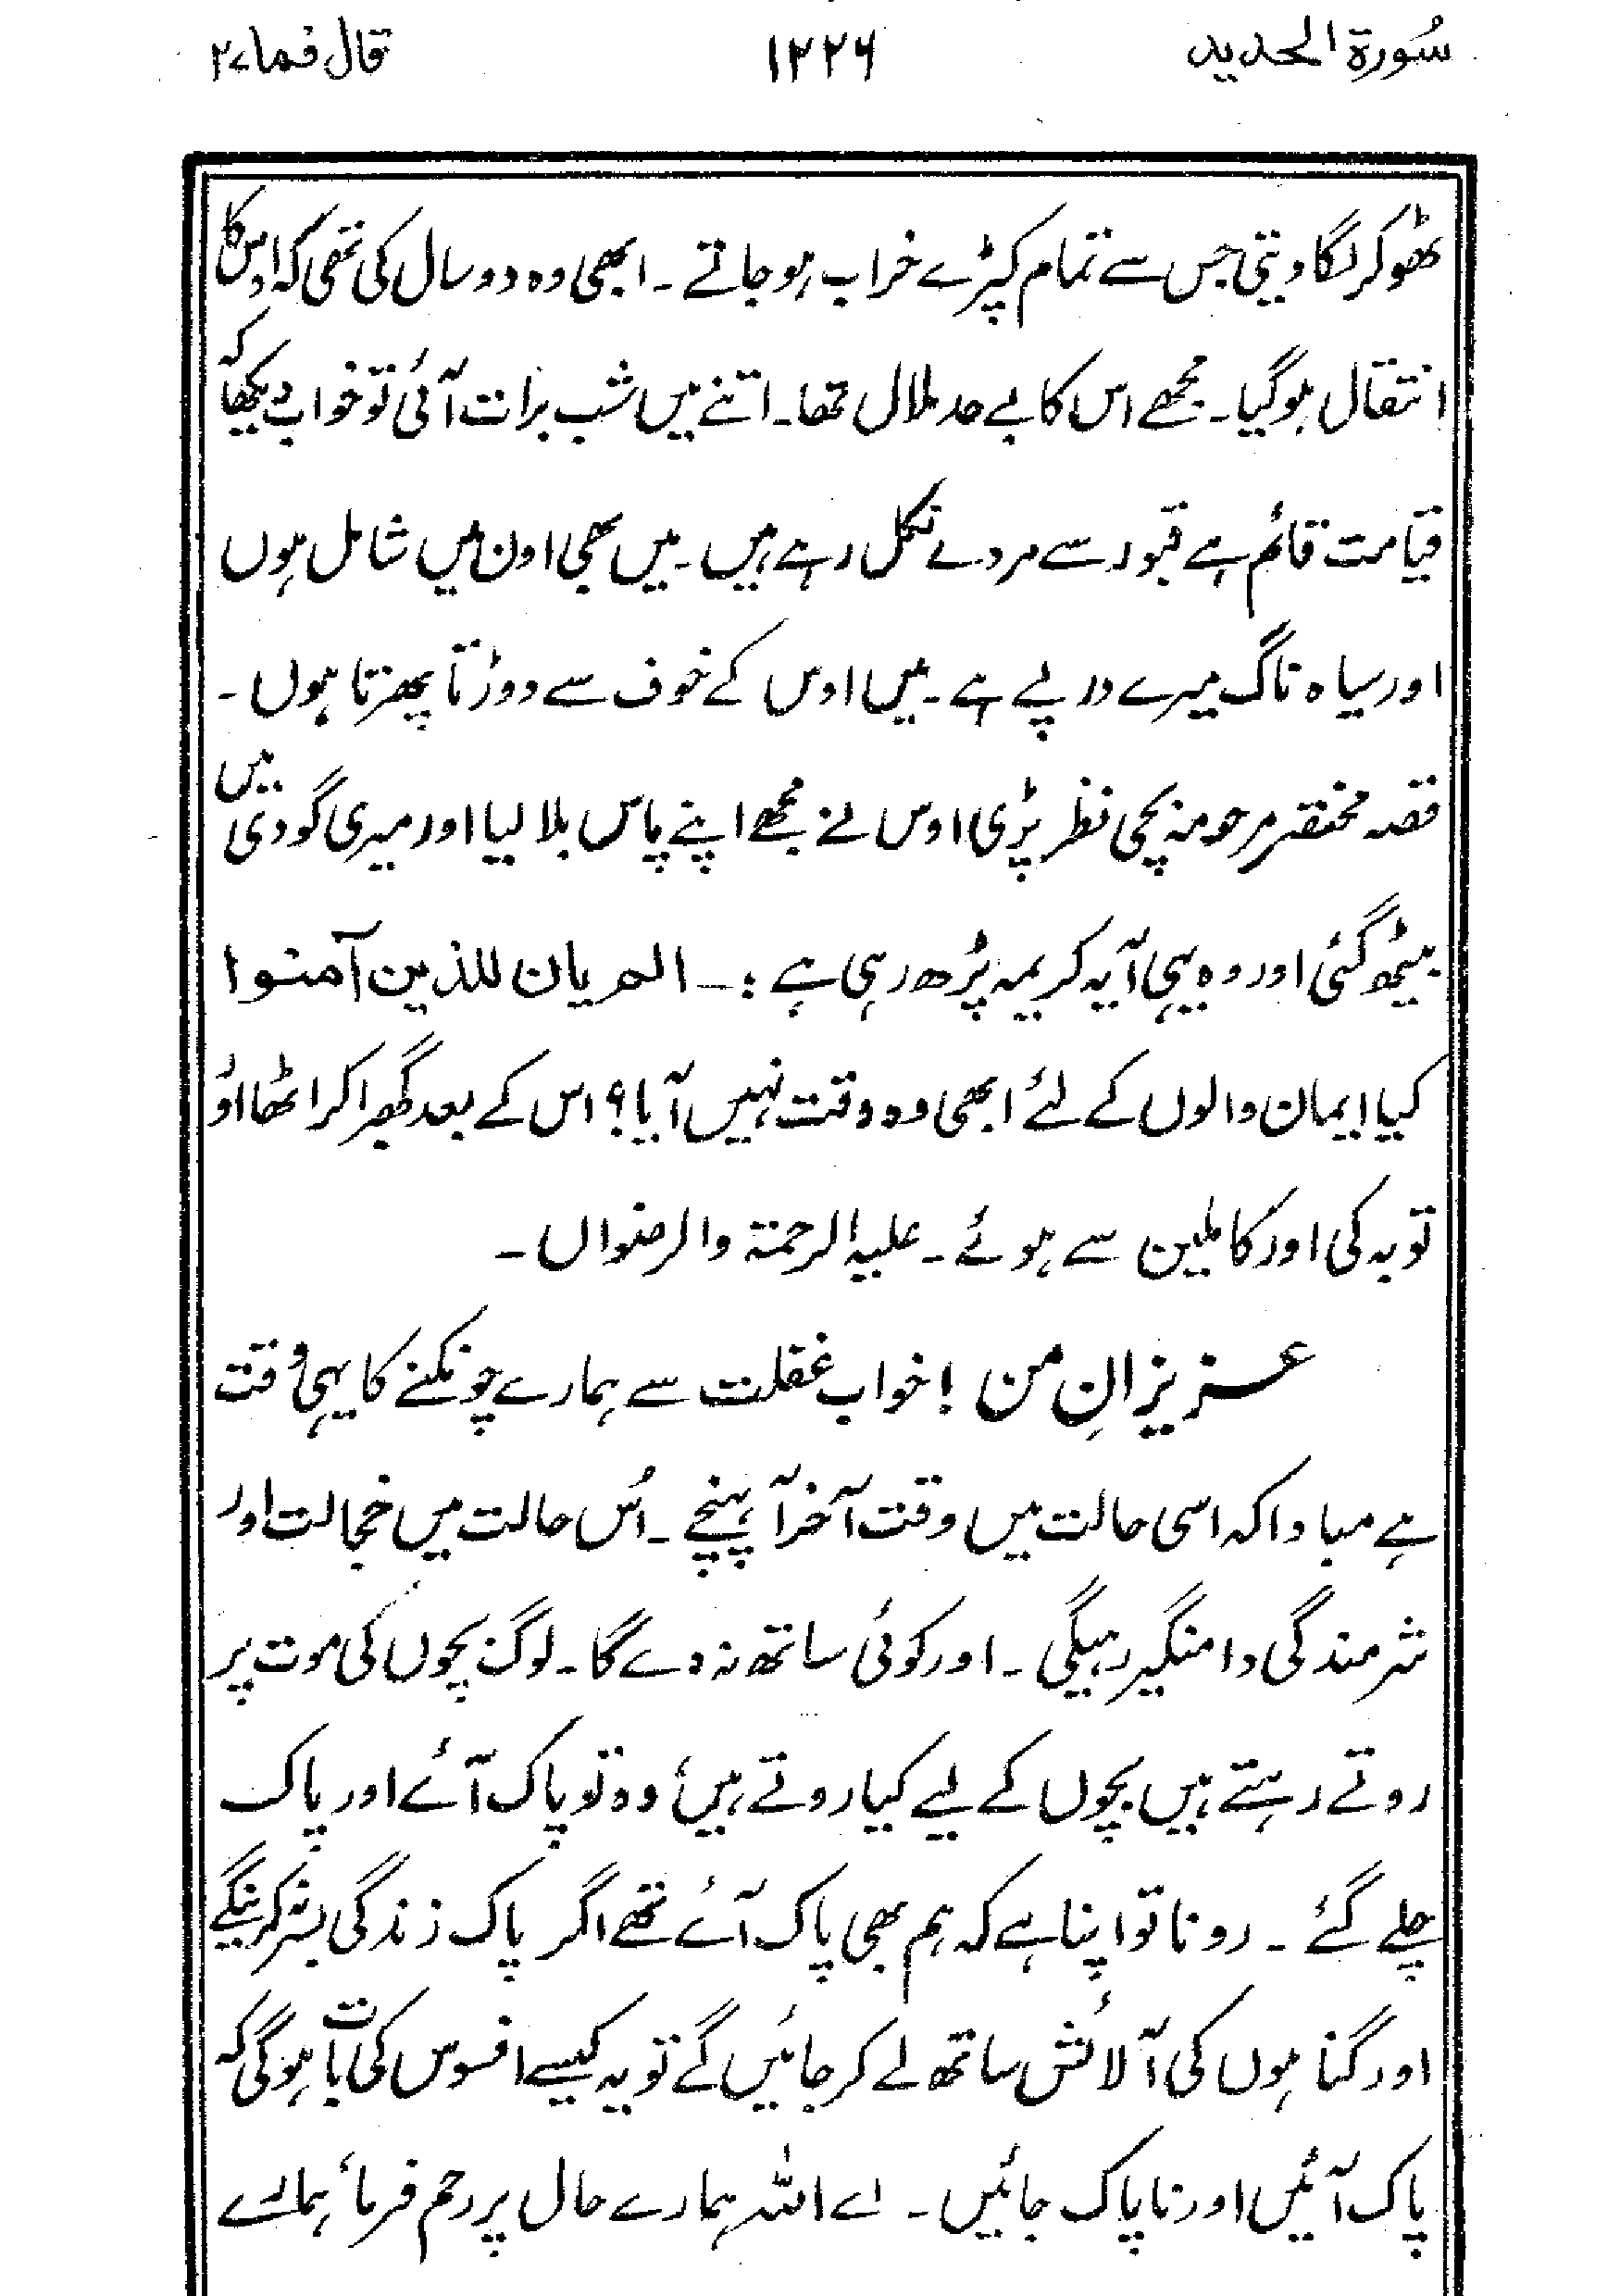 سُورۃ الحدید ۱۲۲۶ قال فما ۲۷
ٹھوکر لگا دیتی جس سے تمام کپڑے خراب ہو جاتے ۔ ابھی وہ دو سال کی تھی کہ اوس کا
انتقال ہو گیا۔ مجھے اس کا بے حد ملال تھا۔ اتنے میں شب برات آئی تو خواب دیکھا کہ
قیامت قائم ہے قبور سے مردے نکل رہے ہیں۔ میں بھی اون میں شامل ہوں
اور سیاہ ناگ میرے درپے ہے۔ میں اوس کے خوف سے دوڑتا پھرتا ہوں ۔
قصہ مختصر مرحومہ بچی نظر پڑی اوس نے مجھے اپنے پاس بلا لیا اور میری گودی میں
بیٹھ گئی اور وہ یہی آیہ کریمہ پڑھ رہی ہے :۔ الم یان للذین آمنوا
کیا ایمان والوں کے لئے ابھی وہ وقت نہیں آیا؟ اس کے بعد گھبرا کر اٹھا اور
توبہ کی اور کاملین سے ہوئے ۔ علیہ الرحمۃ والرضواں ۔
عزیزانِ من ! خواب غفلت سے ہمارے چونکنے کا یہی وقت
ہے مبادا کہ اسی حالت میں وقت آخر آ پہنچے ۔ اُس حالت میں خجالت اور
شرمندگی دامنگیر رہیگی ۔ اور کوئی ساتھ نہ دے گا۔ لوگ بچوں کی موت پر
روتے رہتے ہیں بچوں کے لیے کیا روتے ہیں، وہ تو پاک آئے اور پاک
چلے گئے ۔ رونا تو اپنا ہے کہ ہم بھی پاک آئے تھے اگر پاک زندگی بسر نہ کرینگے
اور گناہوں کی آلائش ساتھ لے کر جائیں گے تو یہ کیسے افسوس کی بات ہوگی کہ
پاک آئیں اور ناپاک جائیں ۔ اے اللہ ہمارے حال پر رحم فرما، ہمارے